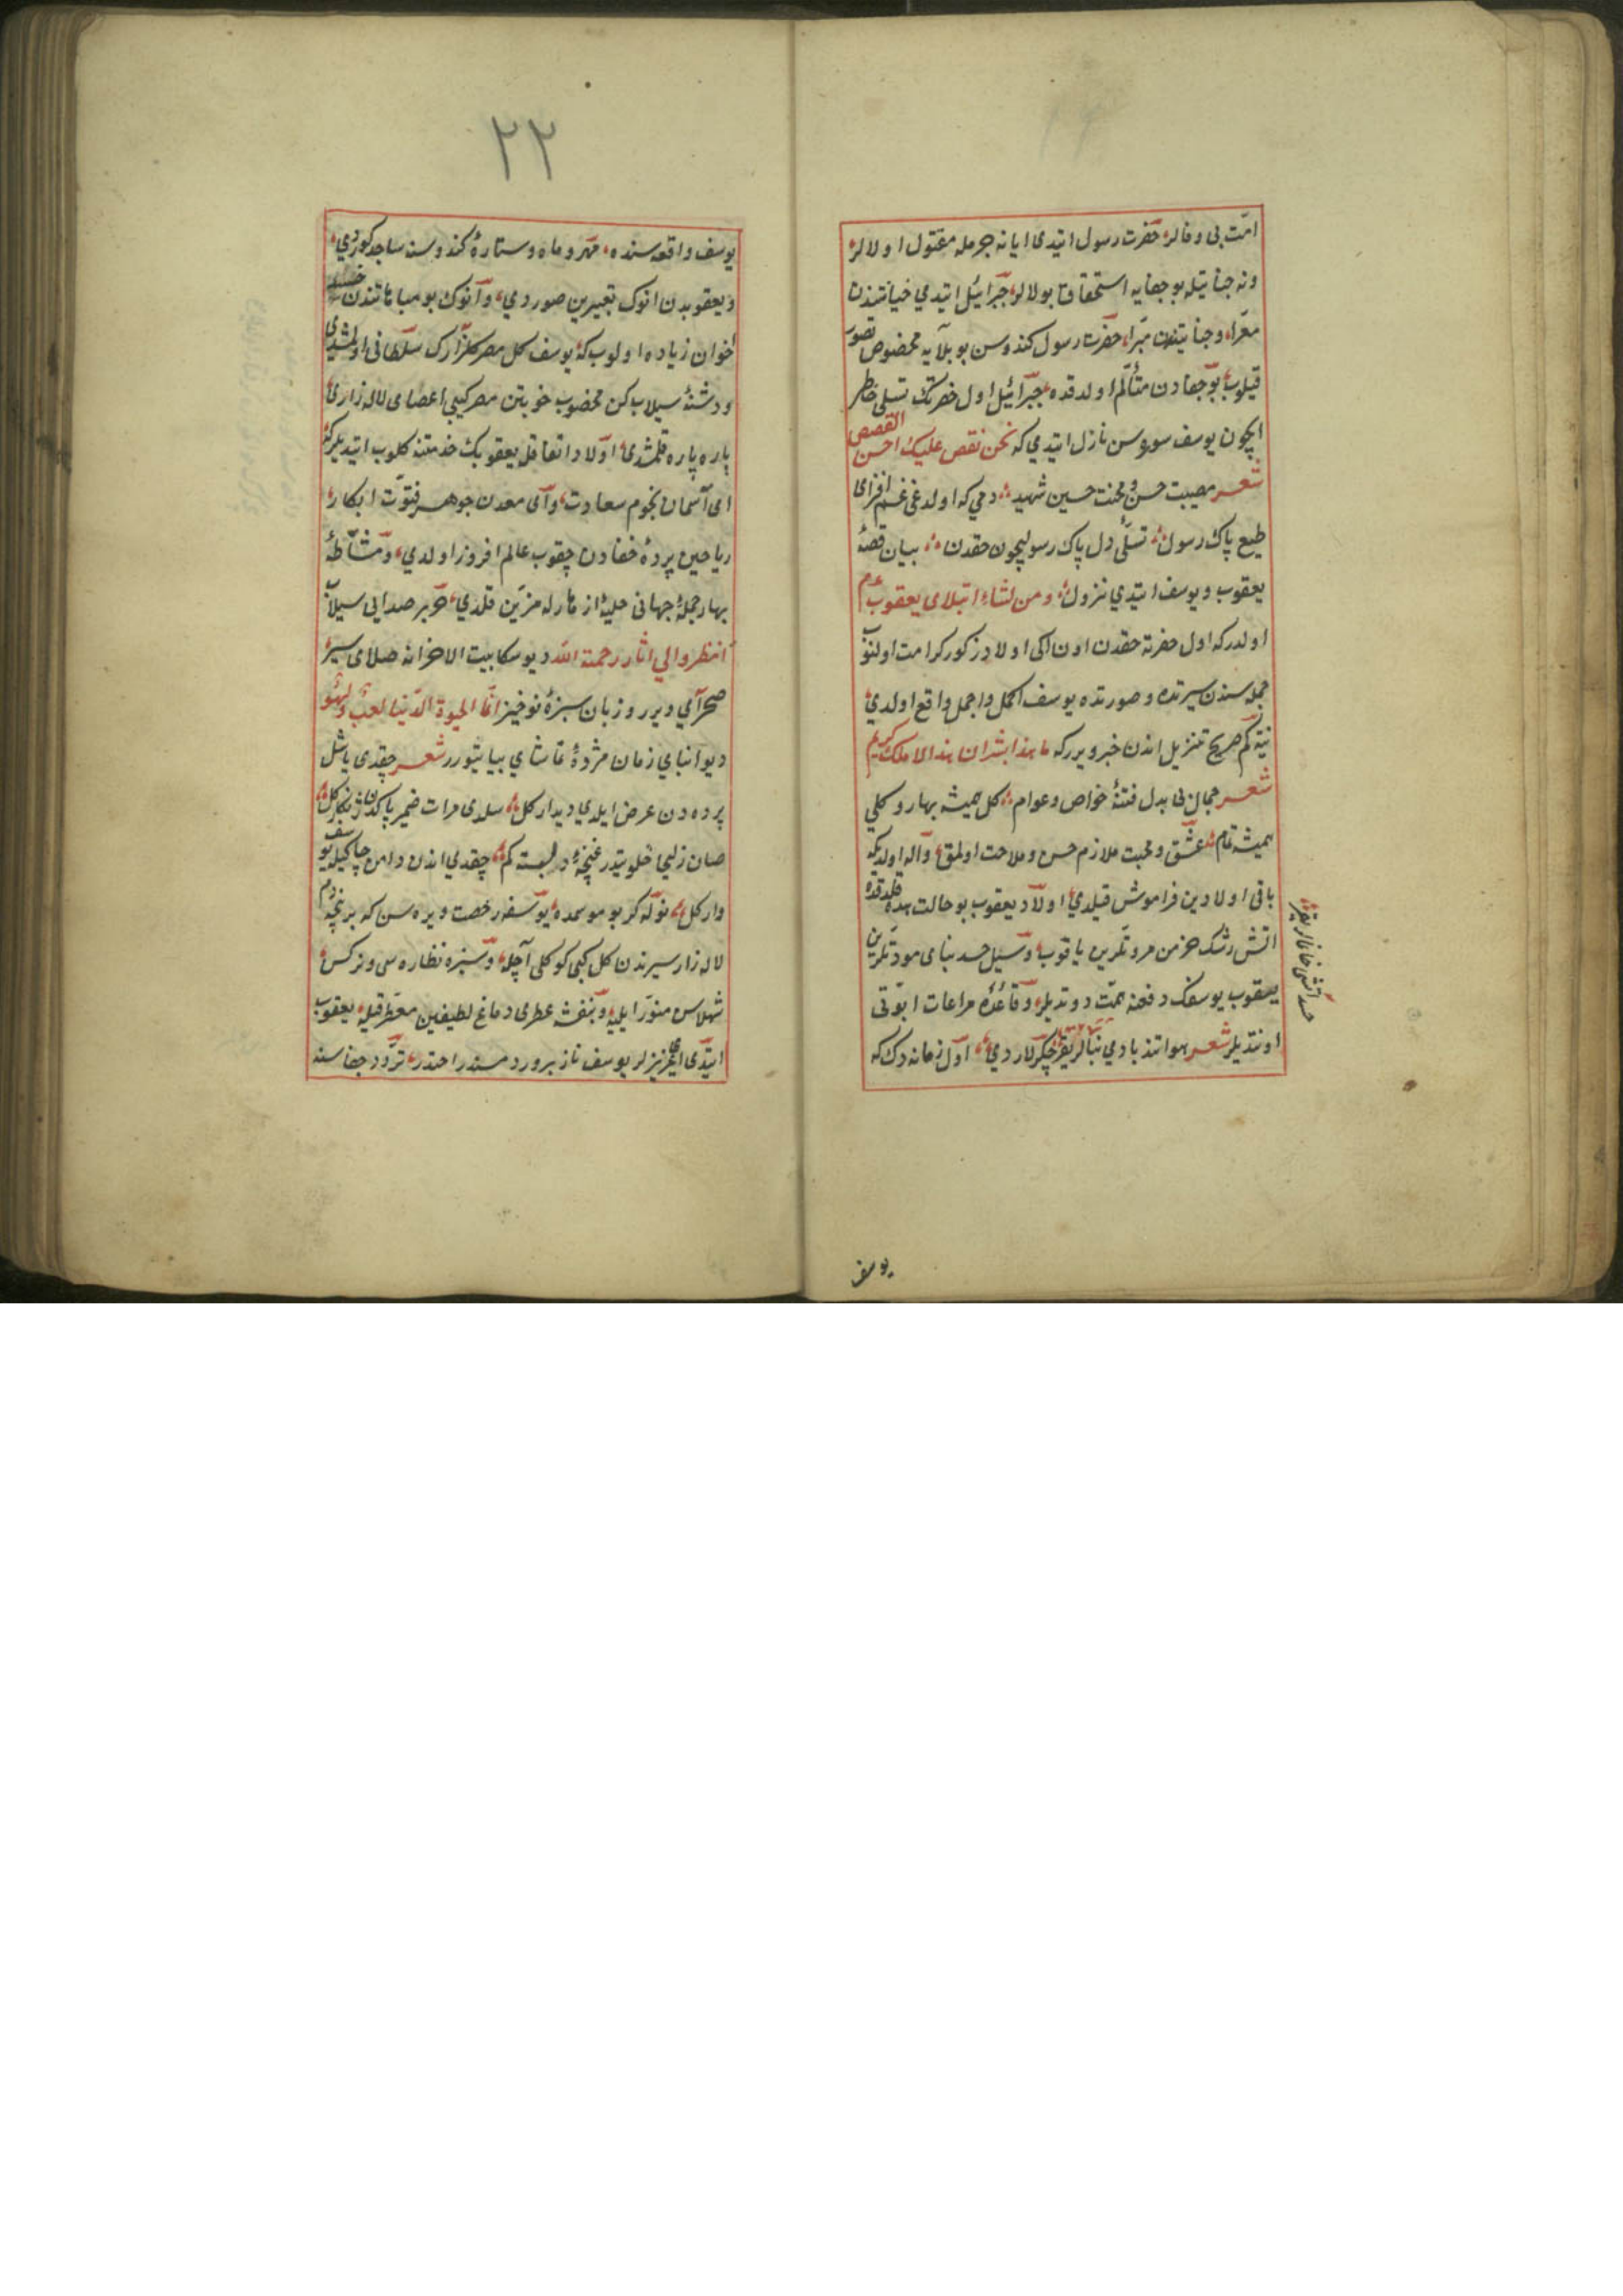 امّت بی وفالر حضرت رسول ایتدی ایا نه جرمله مقتول اولالر
ونه جنایتله بو جفایه استحقاق بولالر جبرائیل ایتدی خیانتندن
معرّا وجنایتدن مبرّا حضرت رسول کندوسن بو بلایه مخصوص تصور
قیلوب بو جفادن متألم اولدقده جبرائیل اول حضرتک تسلی خاطر
ایچون یوسف سوره سن نازل ایتدی که نحن نقص علیک احسن القصص
شعر مصیبت حسن ومحنت حسین شهید دمی که اولدی غم افزای
طبع پاک رسول تسلّی دل پاک رسولیچون حقدن بیان قصهٔ
یعقوب ویوسف ایتدی نزول ومن لشاء ابتلای یعقوب عم
اولدرکه اول حضرته حقدن اون ایکی اولاد ذکور کرامت اولنوب
جمله سندن سیرتده وصورتده یوسف اکمل واجمل واقع اولدی
نیته کم صریح تنزیل اندن خبر ویررکه ما هذا بشرا ان هذا الا ملک کریم
شعر جمال بی بدل فتنهٔ خواص وعوام کل همیشه بهار و کلی
همیشه تمام عشق ومحبت ملازم حسن وملاحت اولمق واله اولدیکه
باقی اولادین فراموش قیلدی اولاد یعقوب بو حالت مشاهده قلدقده
اتش رشک خرمن مروتلرین یاقوب وسیل حسد بنای مودتلرین
یعقوب یوسفک دفعنه همت دوتدیلر وقاعدهٔ مراعات ابوّتی
اونتدیلر شعر هوا تندبادی نبالر یقر جکرلار دمی اول زمانه دک که
حسد آتشی خانمانلر یقر
یوسف
٢٢
یوسف واقعه سنده مهر وماه وستاره کندوسنه ساجد کوردی
ویعقوبدن انوک تعبیرین صوردی وآنوک بو مباهاتندن حسد
اخوان زیاده اولوب که یوسف کل مصر کلزارک سلطانی اولمشدی
ودشنهٔ سیلاب کن مخضوب خونین مصر کیبی اعضای لاله زاری
پاره پاره قلمشدی اولاد اتفاقله یعقوبک خدمتنه کلوب ایتدیلر که
ای آسمان نجوم سعادت وای معدن جوهر فتوّت ابکار
ریاحین پردهٔ خفادن چقوب عالم افروز اولدی ومشاطهٔ
بهار جملهٔ جهانی حلیهٔ ازهارله مزیّن قلدی خریر صدایی سیلاب
انظروا الی اثار رحمة الله دیو سکا بیت الاحزانه صلای سیر
صحرا ویرر وزبان سبزهٔ نوخیز انّما الحیوة الدّنیا لعب ولهو
دیو ابنای زمان مژدهٔ تماشای بیا یتورر شعر چقدی یاشل
پرده دن عرض ایلدی دیدار کل سلدی مرات ضمیر پاکدن ژنکار کل
صان زلیخا خلوتیدر غنچهٔ دلبسته کم چقدی اندن دامن چاکیله یوسف
وار کل نوله کر بو موسمده یوسفه رخصت ویره سن که بر نیجه دم
لاله زار سیرندن کل کبی کوکلی آچله وسبزه نظاره سی ونرکس
شهلاسن منوّر ایلیه وبنفشه عطری دماغ لطیفین معطّر قیله یعقوب
ایتدی ای عزیزلر یوسف ناز پرورد مسند راحتدر تردّد جفاسنه